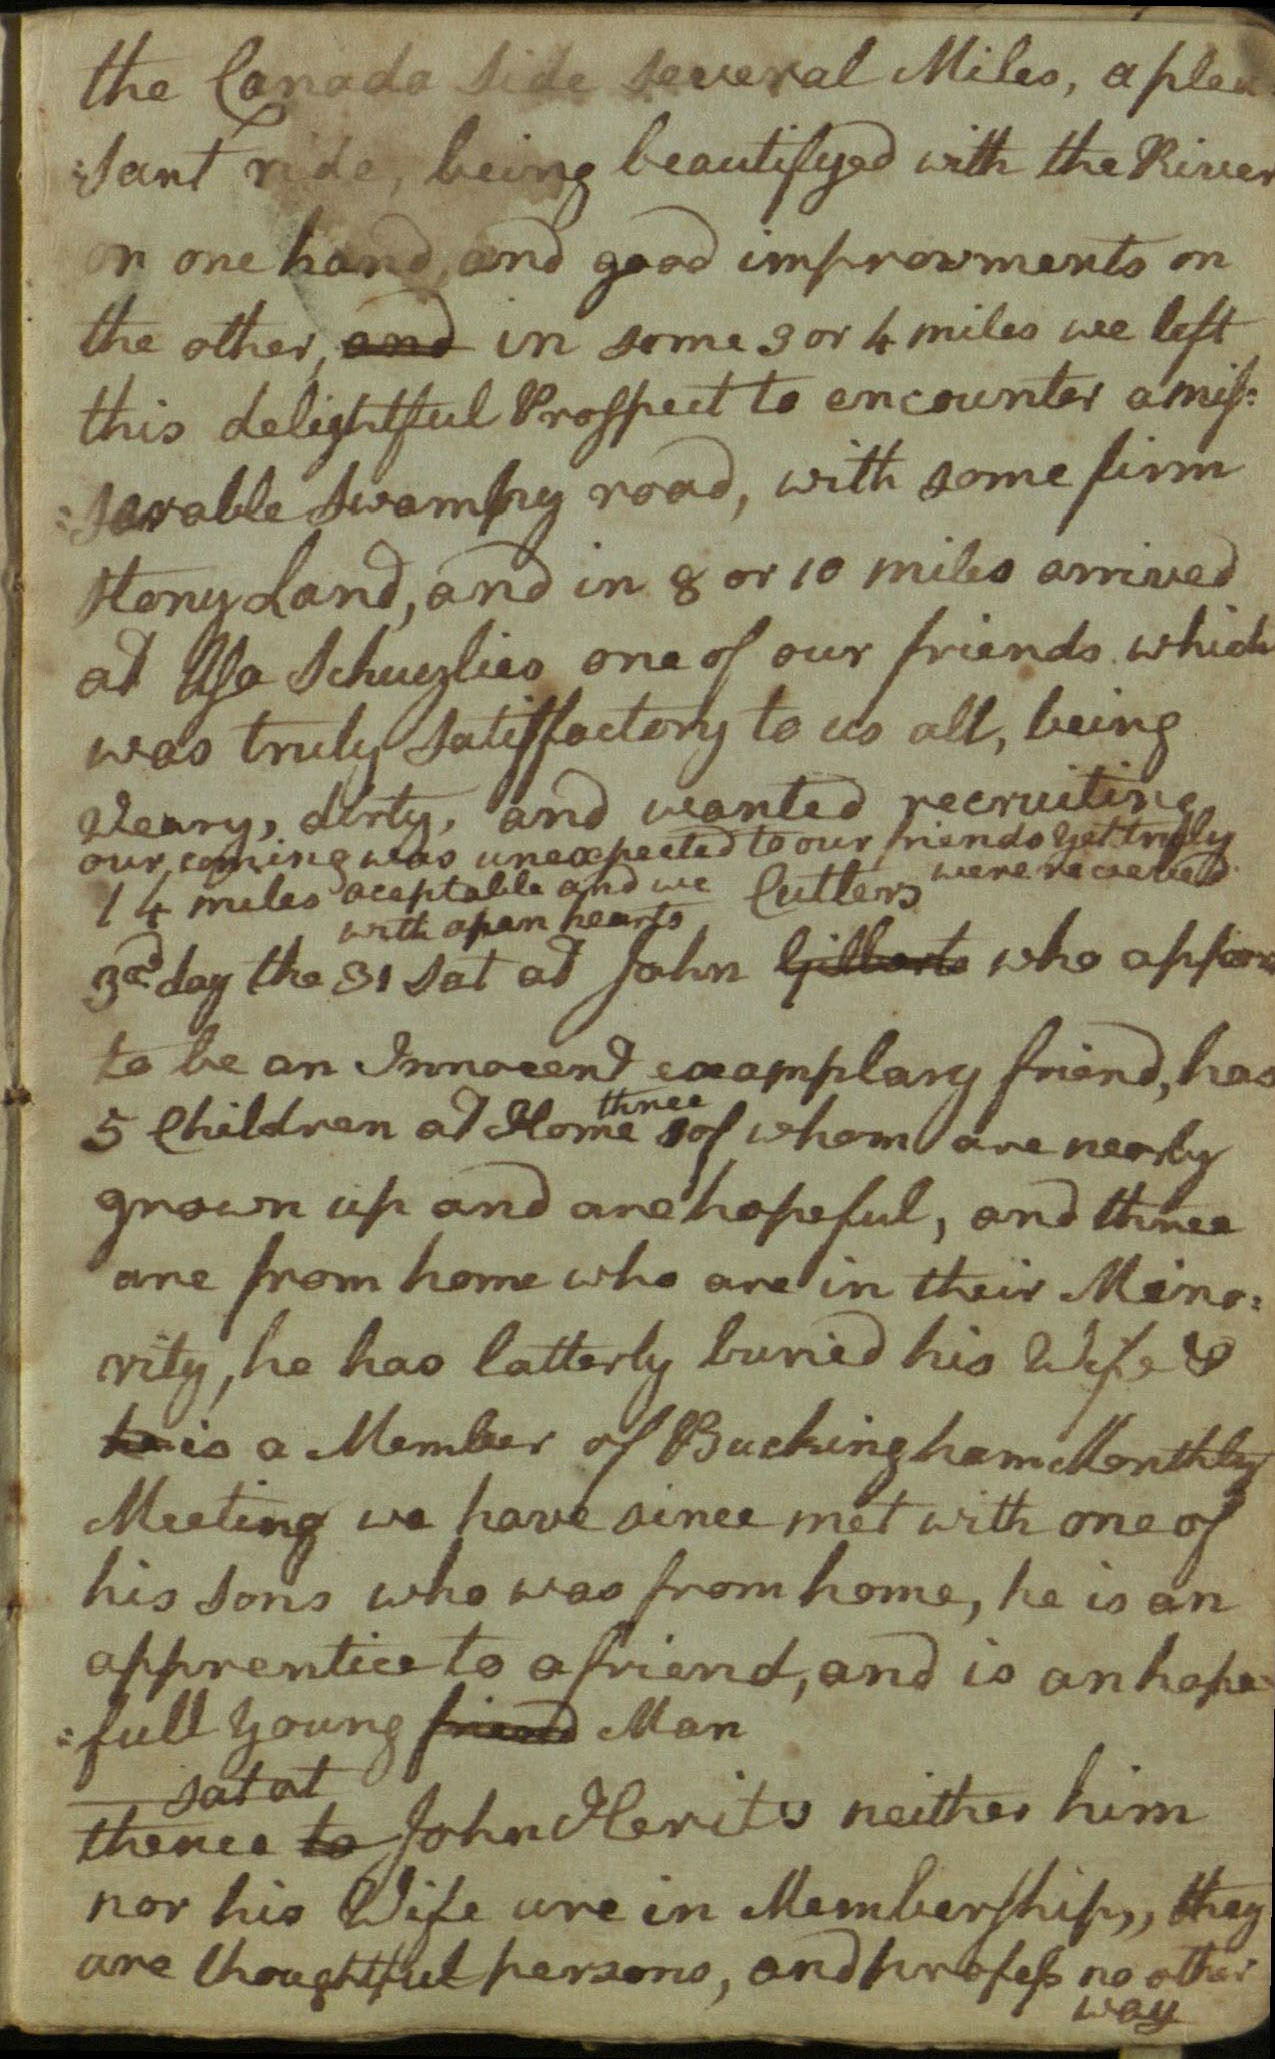 the Canada side several Miles, a plea-
:sant ride, being beautifyed with the River
on one hand, and good improvments on
the other, and in some 3 or 4 miles we left
this delightful Prospect to encounter a mis:
:serable swampy road, with some firm
stony Land, and in 8 or 10 miles arrived
at Asa Schuylies one of our friends which
was truly satisfactory to us all, being
Weary, dirty, and wanted recruiting
our coming was unexpected to our friends yet truly
14 miles aceptable and we were receeved
with open hearts Cutlers
3rd day the 31 sat at John Gilberts who appears
to be an Innocent examplary friend, has
three
5 Children at Home of whom are nearly
grown up and are hopeful, and three
are from home who are in their Mino:
rity, he has latterly buried his Wife &
he is a Member of Buckingham Monthly
Meeting we have since met with one of
his sons who was from home, he is an
apprentice to a friend, and is an hope
:full young friend Man
sat at
thence to John Herits neither him
nor his Wife are in Membership,, they
are thoughtful persons, and profess no other
way